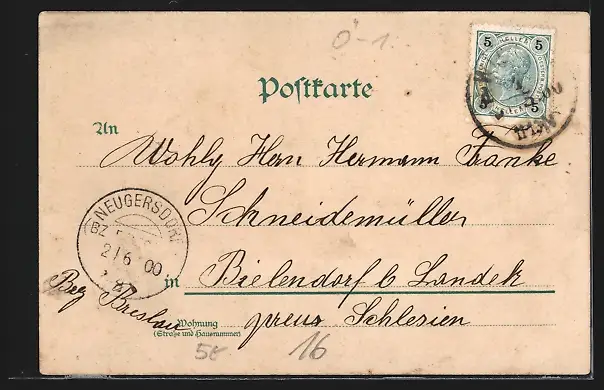 Ö-1.
5 HELLER 5
5 5
Postkarte
An
Wohlg Herrn Hermann Franke
Schneidemüller
NEUGERSDORF
BZ
2/6 00
in Bielendorf b Landek
Bez Breslau
preus Schlesien
Wohnung
(Straße und Hausnummer)
58
16